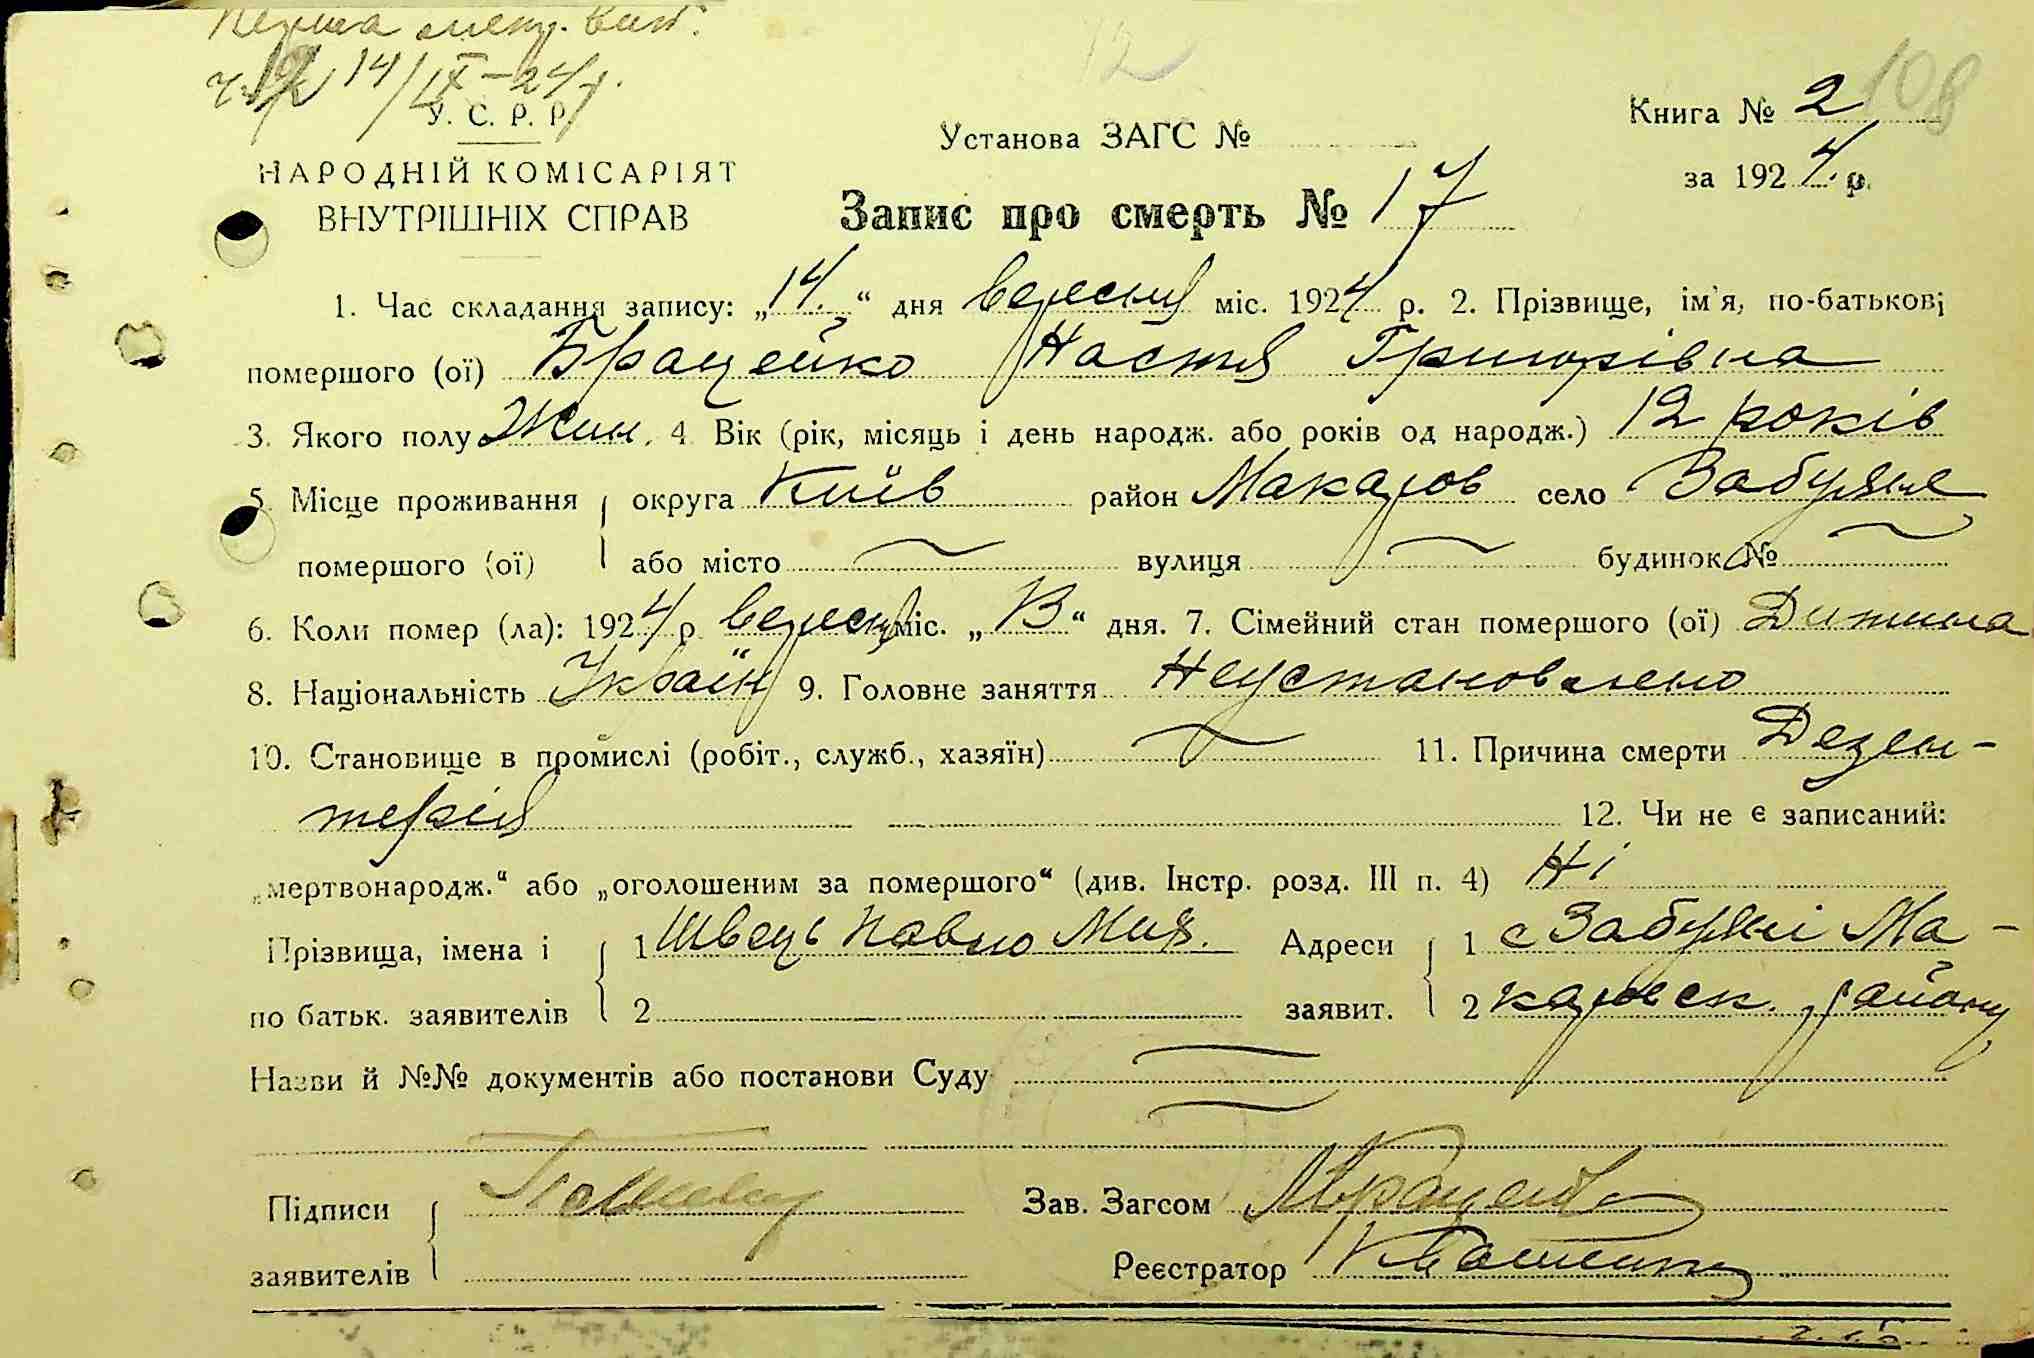 12
108
14/IX–24 р.
У. С. Р. Р.
НАРОДНІЙ КОМІСАРІЯТ
ВНУТРІШНІХ СПРАВ
Установа ЗАГС №
Книга № 2
за 1924 р.
Запис про смерть № 17
1. Час складання запису: „14.“ дня вересня міс. 1924 р. 2. Прізвище, ім'я, по-батькові
помершого (ої) Брацейко Настя Григорівна
3. Якого полу Жин. 4 Вік (рік, місяць і день народж. або років од народж.) 12 років
5. Місце проживання округа Київ район Макаров село Забуяння
помершого (ої) або місто — вулиця — будинок № —
6. Коли помер (ла): 1924 р вересня міс. „13“ дня. 7. Сімейний стан помершого (ої) Дитина
8. Національність Україн 9. Головне заняття Неустановлено
10. Становище в промислі (робіт., служб., хазяїн) — 11. Причина смерти Дезен-
терія 12. Чи не є записаний:
„мертвонародж.“ або „оголошеним за помершого“ (див. Інстр. розд. III п. 4) Ні
Прізвища, імена і 1 Швець Павло Мих. Адреси 1 с Забуяні Ма-
по батьк. заявителів 2 заявит. 2 каровск. району
Назви й №№ документів або постанови Суду —
—
Підписи Зав. Загсом
заявителів Реєстратор